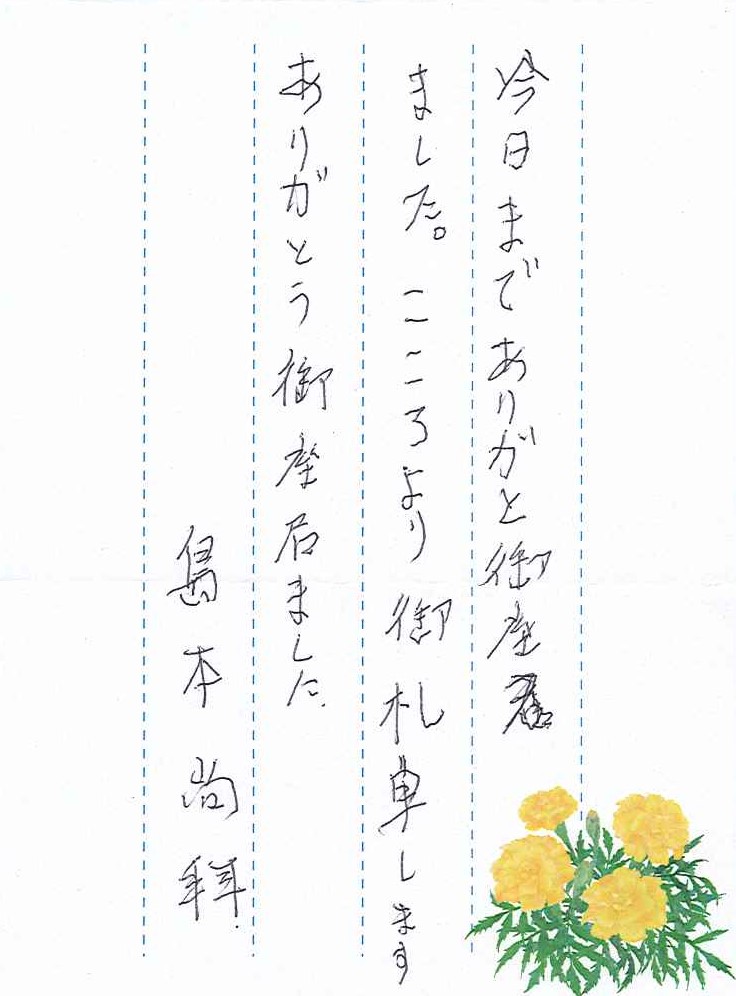 今日までありがと御座居
ました。こころより御札申します
ありがとう御座居ました.
島本尚拜.